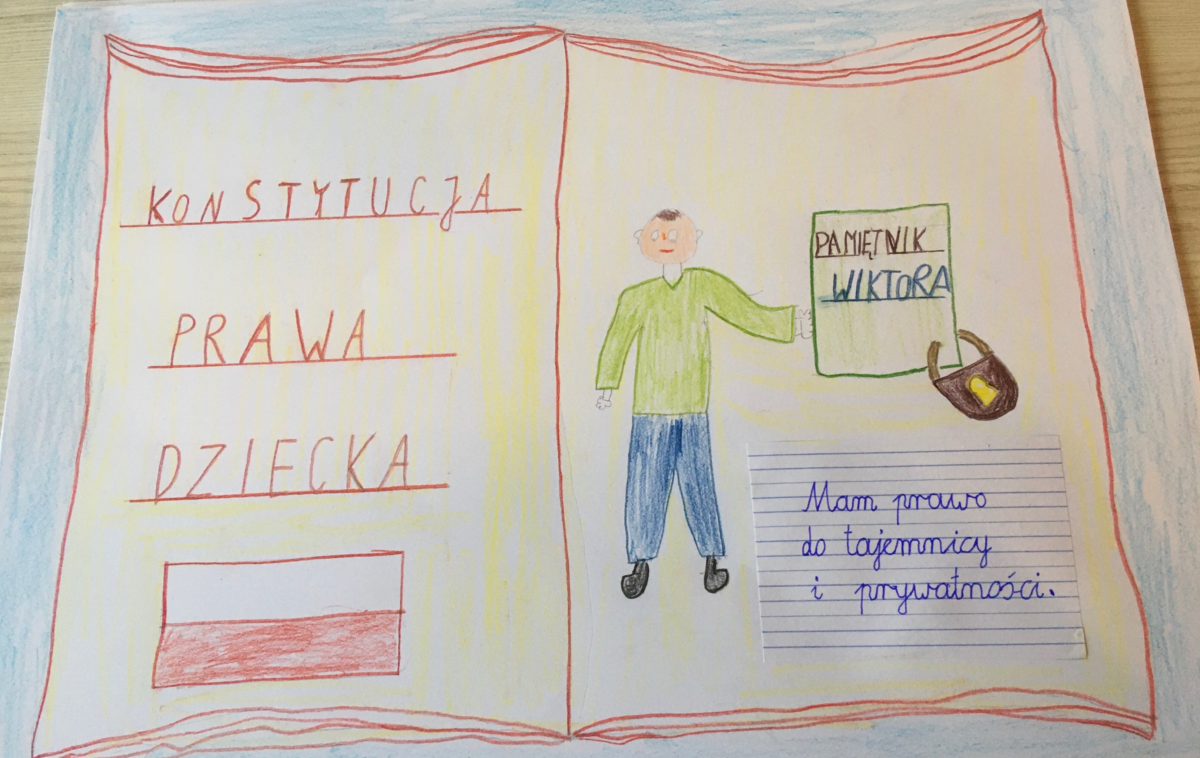 KONSTYTUCJA
PRAWA
DZIECKA
PAMIĘTNIK
WIKTORA
Mam prawo
do tajemnicy
i prywatności.